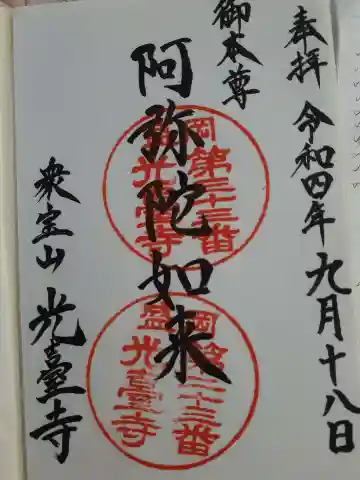 奉拝 令和四年九月十八日
御本尊
阿弥陀如来
衆宝山 光臺寺
盛岡
第三十三番
光臺寺
盛岡
第三十三番
光臺寺